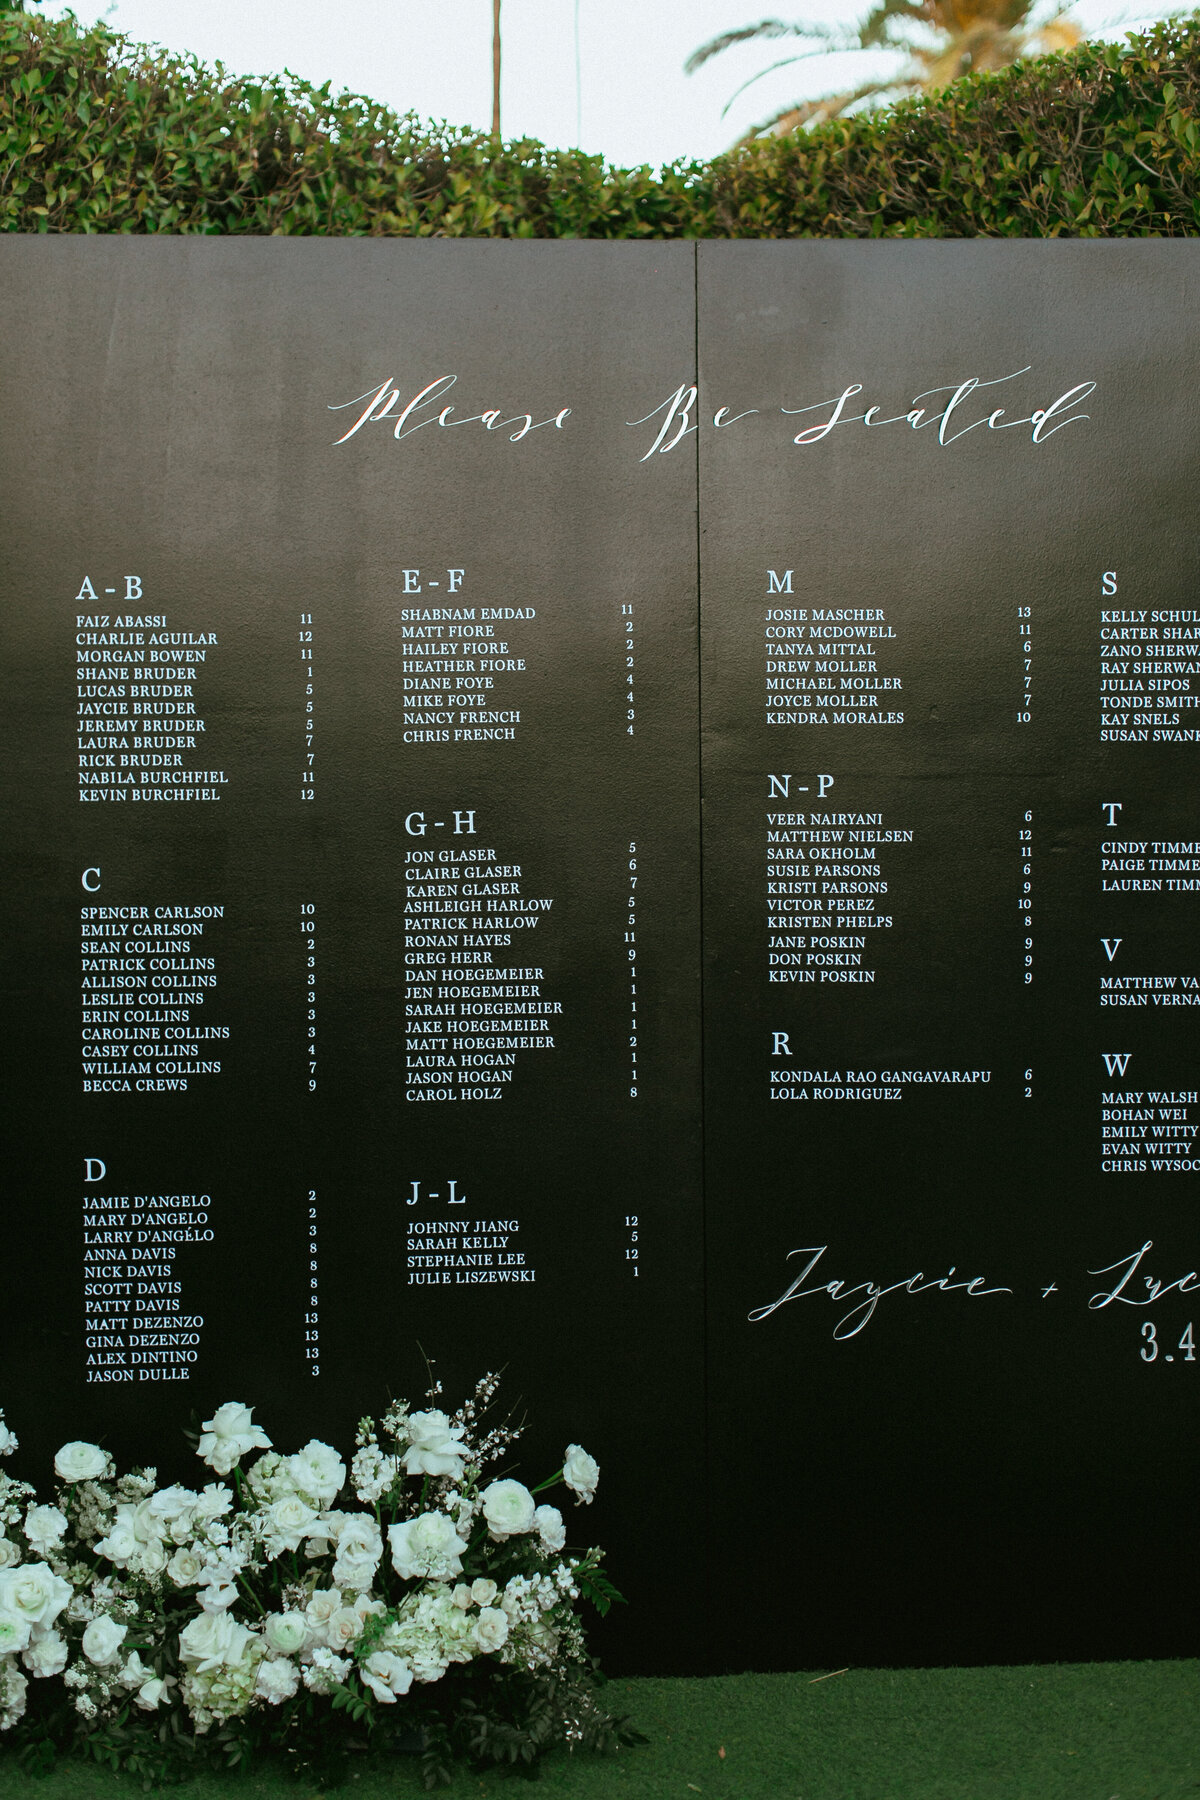 Please Be Seated
A - B
FAIZ ABASSI 11
CHARLIE AGUILAR 12
MORGAN BOWEN 11
SHANE BRUDER 1
LUCAS BRUDER 5
JAYCIE BRUDER 5
JEREMY BRUDER 5
LAURA BRUDER 7
RICK BRUDER 7
NABILA BURCHFIEL 11
KEVIN BURCHFIEL 12
C
SPENCER CARLSON 10
EMILY CARLSON 10
SEAN COLLINS 2
PATRICK COLLINS 3
ALLISON COLLINS 3
LESLIE COLLINS 3
ERIN COLLINS 3
CAROLINE COLLINS 3
CASEY COLLINS 4
WILLIAM COLLINS 7
BECCA CREWS 9
D
JAMIE D'ANGELO 2
MARY D'ANGELO 2
LARRY D'ANGÉLO 3
ANNA DAVIS 8
NICK DAVIS 8
SCOTT DAVIS 8
PATTY DAVIS 8
MATT DEZENZO 13
GINA DEZENZO 13
ALEX DINTINO 13
JASON DULLE 3
E - F
SHABNAM EMDAD 11
MATT FIORE 2
HAILEY FIORE 2
HEATHER FIORE 2
DIANE FOYE 4
MIKE FOYE 4
NANCY FRENCH 3
CHRIS FRENCH 4
G - H
JON GLASER 5
CLAIRE GLASER 6
KAREN GLASER 7
ASHLEIGH HARLOW 5
PATRICK HARLOW 5
RONAN HAYES 11
GREG HERR 9
DAN HOEGEMEIER 1
JEN HOEGEMEIER 1
SARAH HOEGEMEIER 1
JAKE HOEGEMEIER 1
MATT HOEGEMEIER 2
LAURA HOGAN 1
JASON HOGAN 1
CAROL HOLZ 8
J - L
JOHNNY JIANG 12
SARAH KELLY 5
STEPHANIE LEE 12
JULIE LISZEWSKI 1
M
JOSIE MASCHER 13
CORY MCDOWELL 11
TANYA MITTAL 6
DREW MOLLER 7
MICHAEL MOLLER 7
JOYCE MOLLER 7
KENDRA MORALES 10
N - P
VEER NAIRYANI 6
MATTHEW NIELSEN 12
SARA OKHOLM 11
SUSIE PARSONS 6
KRISTI PARSONS 9
VICTOR PEREZ 10
KRISTEN PHELPS 8
JANE POSKIN 9
DON POSKIN 9
KEVIN POSKIN 9
R
KONDALA RAO GANGAVARAPU 6
LOLA RODRIGUEZ 2
S
KELLY SCHUL
CARTER SHAR
ZANO SHERWA
RAY SHERWAN
JULIA SIPOS
TONDE SMITH
KAY SNELS
SUSAN SWANK
T
CINDY TIMME
PAIGE TIMME
LAUREN TIMM
V
MATTHEW VA
SUSAN VERNA
W
MARY WALSH
BOHAN WEI
EMILY WITTY
EVAN WITTY
CHRIS WYSOC
Jaycie + Luc
3.4